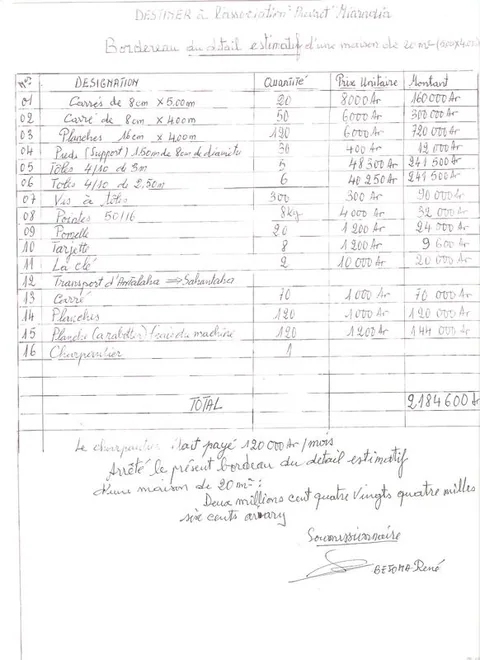 DESTINER à l'association "Projet" Miaradia
Bordereau du détail estimatif d'une maison de 20m² (500x400)
N° DESIGNATION Quantité Prix Unitaire Montant
01 Carrés de 8cm x 5.00m 20 8000Ar 160000Ar
02 Carré de 8cm x 400m 50 6000Ar 300 000Ar
03 Planches 16cm x 400m 120 6000Ar 720 000Ar
04 Pieds (Support) 1.50m de 8cm de diamètre 30 400 Ar 12 000Ar
05 Tôles 4/10 de 3m 5 48 300Ar 241 500Ar
06 Tôles 4/10 de 2,50m 6 40 250Ar 241 500Ar
07 Vis à tôles 300 300 Ar 90 000Ar
08 Pointes 50/16 8kg 4 000 Ar 32 000Ar
09 Pomelle 20 1 200Ar 24 000Ar
10 Tarjette 8 1 200Ar 9 600Ar
11 La clé 2 10 000Ar 20 000Ar
12 Transport d'Antalaha ⇒ Sahantaha
13 Carré 70 1 000Ar 70 000Ar
14 Planches 120 1 000Ar 120 000Ar
15 Planche (à raboter) frais du machine 120 1 200Ar 144 000Ar
16 Charpentier 1
TOTAL 2184600Ar
Le charpentier était payé 120 000Ar/mois
Arrêté le présent bordeau du détail estimatif
d'une maison de 20m² :
Deux millions cent quatre vingts quatre milles
six cents ariary
Soumissionnaire
BEFOMA René